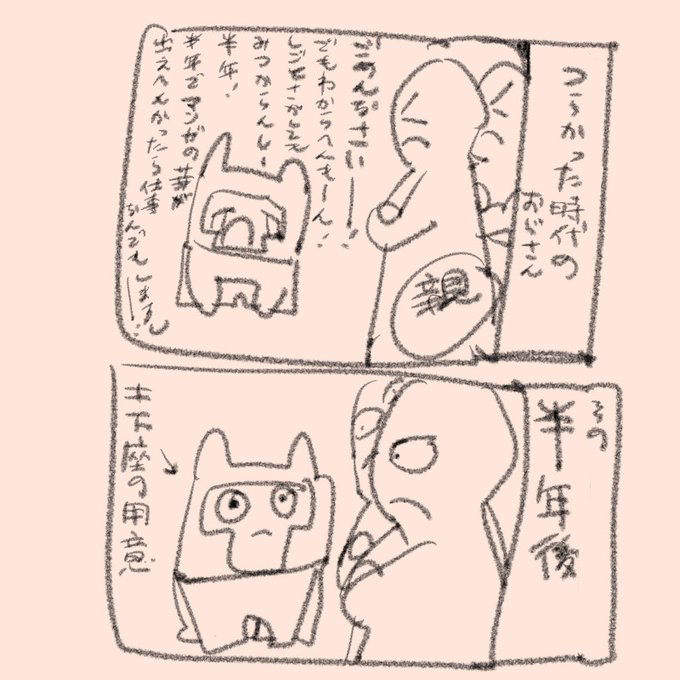 つらかった時代の
おじさん
親
ごめんなさいー!
でもわからへんもーん!
しごとさがしても
みつからんしー
半年!
半年でマンガの芽が
出えへんかったら仕事
なんでもしますぅー!
その
半年後
土下座の用意